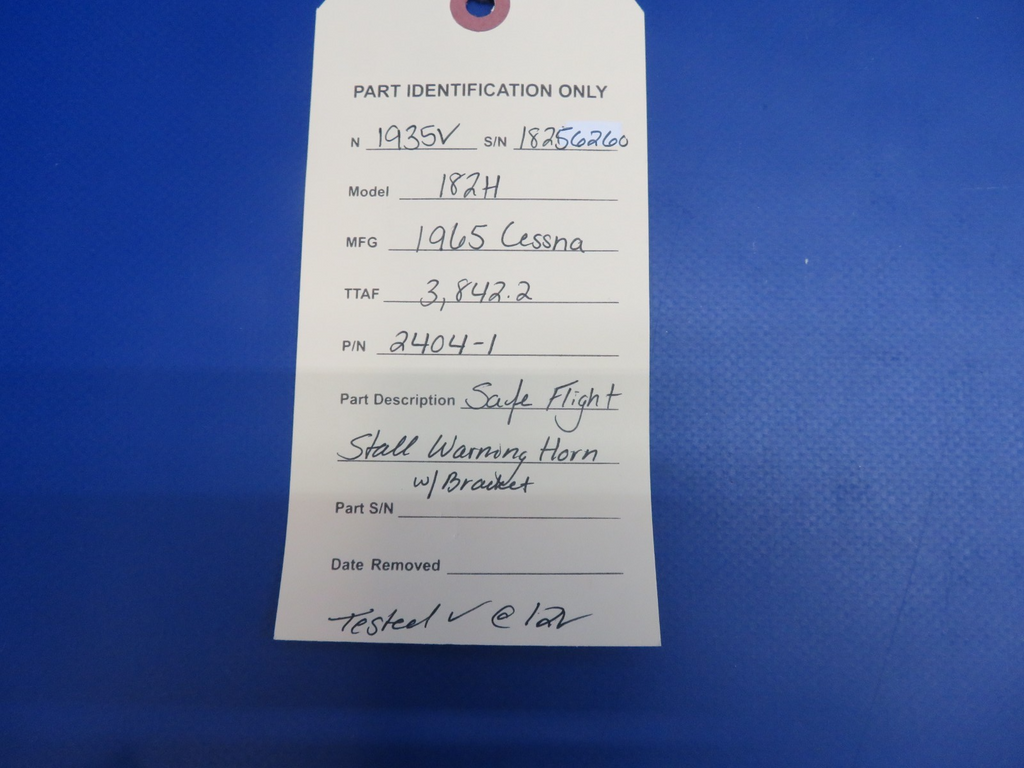 PART IDENTIFICATION ONLY
N 1935V S/N 18256260
Model 182H
MFG 1965 Cessna
TTAF 3,842.2
P/N 2404-1
Part Description Safe Flight
Stall Warning Horn
w/ Bracket
Part S/N
Date Removed
Tested ✓ @ 12v